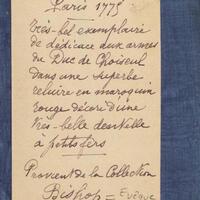 Paris 1775
Très-bel exemplaire
de dédicace aux armes
du Duc de Choiseul
dans une superbe
reliure en maroquin
rouge décoré d'une
très-belle dentelle
à petits fers
Provient de la Collection
Bishop = Evêque